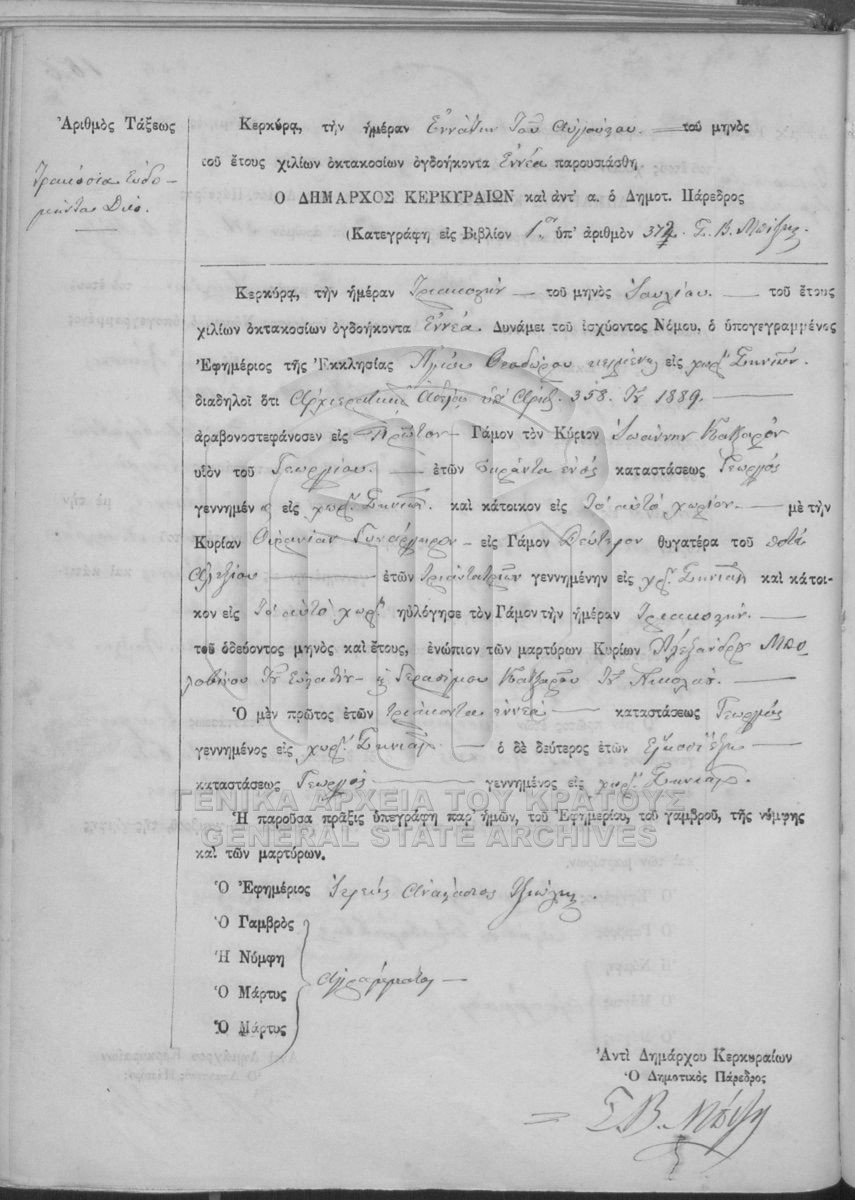 Ἀριθμὸς Τάξεως
Τριακόσια Ἑβδο-
μήντα Δύο.
Κερκύρᾳ, τὴν ἡμέραν Ἐννάτην τοῦ Αὐγούστου. τοῦ μηνὸς
τοῦ ἔτους χιλίων ὀκτακοσίων ὀγδοήκοντα Ἐννέα παρουσιάσθη
Ο ΔΗΜΑΡΧΟΣ ΚΕΡΚΥΡΑΙΩΝ καὶ ἀντ' α. ὁ Δημοτ. Πάρεδρος
(Κατεγράφη εἰς Βιβλίον 1ον ὑπ' ἀριθμὸν 372.
Κερκύρᾳ, τὴν ἡμέραν Τριακοστὴν τοῦ μηνὸς Ἰουλίου. τοῦ ἔτους
χιλίων ὀκτακοσίων ὀγδοήκοντα Ἐννέα. Δυνάμει τοῦ ἰσχύοντος Νόμου, ὁ ὑπογεγραμμένος
Ἐφημέριος τῆς Ἐκκλησίας Ἁγίου Θεοδώρου κειμένης εἰς χωρ.
διαδηλοῖ ὅτι Ἀρχιερατικῇ Ἀδείᾳ ὑπ' Ἀριθ. 358. τοῦ 1889.
ἀραβονοστεφάνοσεν εἰς Πρῶτον Γάμον τὸν Κύριον Ἰωάννην Κατζαρὸν
υἱὸν τοῦ Γεωργίου. ἐτῶν σαράντα ἑνὸς καταστάσεως Γεωργὸς
γεννημέν ο εἰς χωρ. καὶ κάτοικον εἰς Τὸ αὐτὸ χωρίον. μὲ τὴν
Κυρίαν Οὐρανίαν εἰς Γάμον Δεύτερον θυγατέρα τοῦ ποτὲ
Ἀλεξίου ἐτῶν τριάντα τριῶν γεννημένην εἰς χωρ. καὶ κάτοι-
κον εἰς Τὸ αὐτὸ χωρ. ηὐλόγησε τὸν Γάμον τὴν ἡμέραν Τριακοστήν.
τοῦ ὁδεύοντος μηνὸς καὶ ἔτους, ἐνώπιον τῶν μαρτύρων Κυρίων Ἀλεξάνδρου
Γερασίμου Κατζαροῦ τοῦ Νικολάου.
Ὁ μὲν πρῶτος ἐτῶν τριάκοντα ἐννέα καταστάσεως Γεωργὸς
γεννημένος εἰς χωρ. ὁ δὲ δεύτερος ἐτῶν εἴκοσι ἕξι
καταστάσεως Γεωργὸς γεννημένος εἰς χωρ.
ΓΕΝΙΚΑ ΑΡΧΕΙΑ ΤΟΥ ΚΡΑΤΟΥΣ
Ἡ παροῦσα πρᾶξις ὑπεγράφη παρ' ἡμῶν, τοῦ Ἐφημερίου, τοῦ γαμβροῦ, τῆς νύμφης
GENERAL STATE ARCHIVES
καὶ τῶν μαρτύρων.
Ὁ Ἐφημέριος Ἱερεὺς
Ὁ Γαμβρὸς
Ἡ Νύμφη
Ἀγράμματοι
Ὁ Μάρτυς
Ὁ Μάρτυς
Ἀντὶ Δημάρχου Κερκυραίων
Ὁ Δημοτικὸς Πάρεδρος